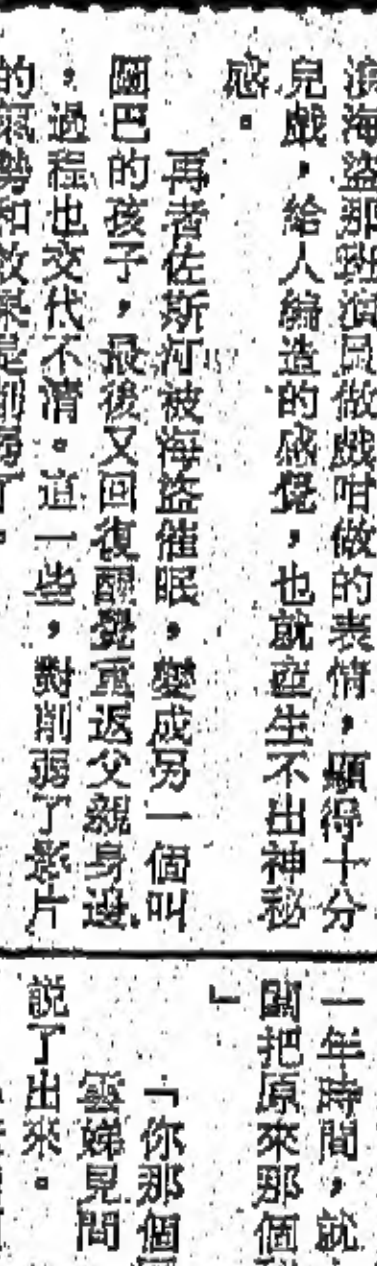 海盜那班演員做戲咁做的表情，顯得十分
兒戲，給人編造的感覺，也就產生不出神秘
感。
再者佐斯河被海盜催眠，變成另一個叫
圖巴的孩子，最後又回復醒覺重返父親身邊
，過程也交代不清。這一些，對削弱了影片
的氣勢和效果是削弱了。
一年時間，就
闆把原來那個
」
「你那個
雲娣見問
説了出來。